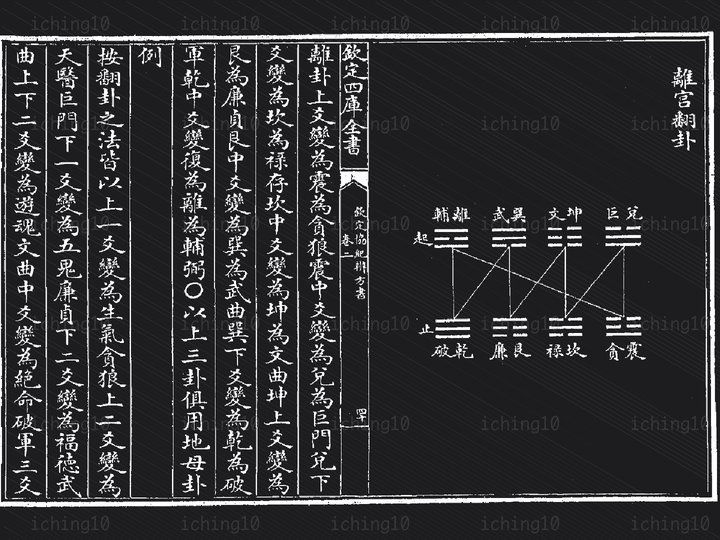 離宮翻卦
兌巨 坤文 巽武 離輔
起
止
震貪 坎祿 艮廉 乾破
欽定四庫全書
欽定協紀辨方書
卷二
離卦上爻變為震為貪狼震中爻變為兌為巨門兌下
爻變為坎為祿存坎中爻變為坤為文曲坤上爻變為
艮為廉貞艮中爻變為巽為武曲巽下爻變為乾為破
軍乾中爻變復為離為輔弼〇以上三卦俱用地母卦
例
按翻卦之法皆以上一爻變為生氣貪狼上二爻變為
天醫巨門下一爻變為五鬼廉貞下二爻變為福德武
曲上下二爻變為遊魂文曲中爻變為絕命破軍三爻
iching10 iching10 iching10 iching10 iching10
iching10 iching10 iching10 iching10 iching10
iching10 iching10 iching10 iching10 iching10
iching10 iching10 iching10 iching10 iching10
iching10 iching10 iching10 iching10 iching10
iching10 iching10 iching10 iching10 iching10